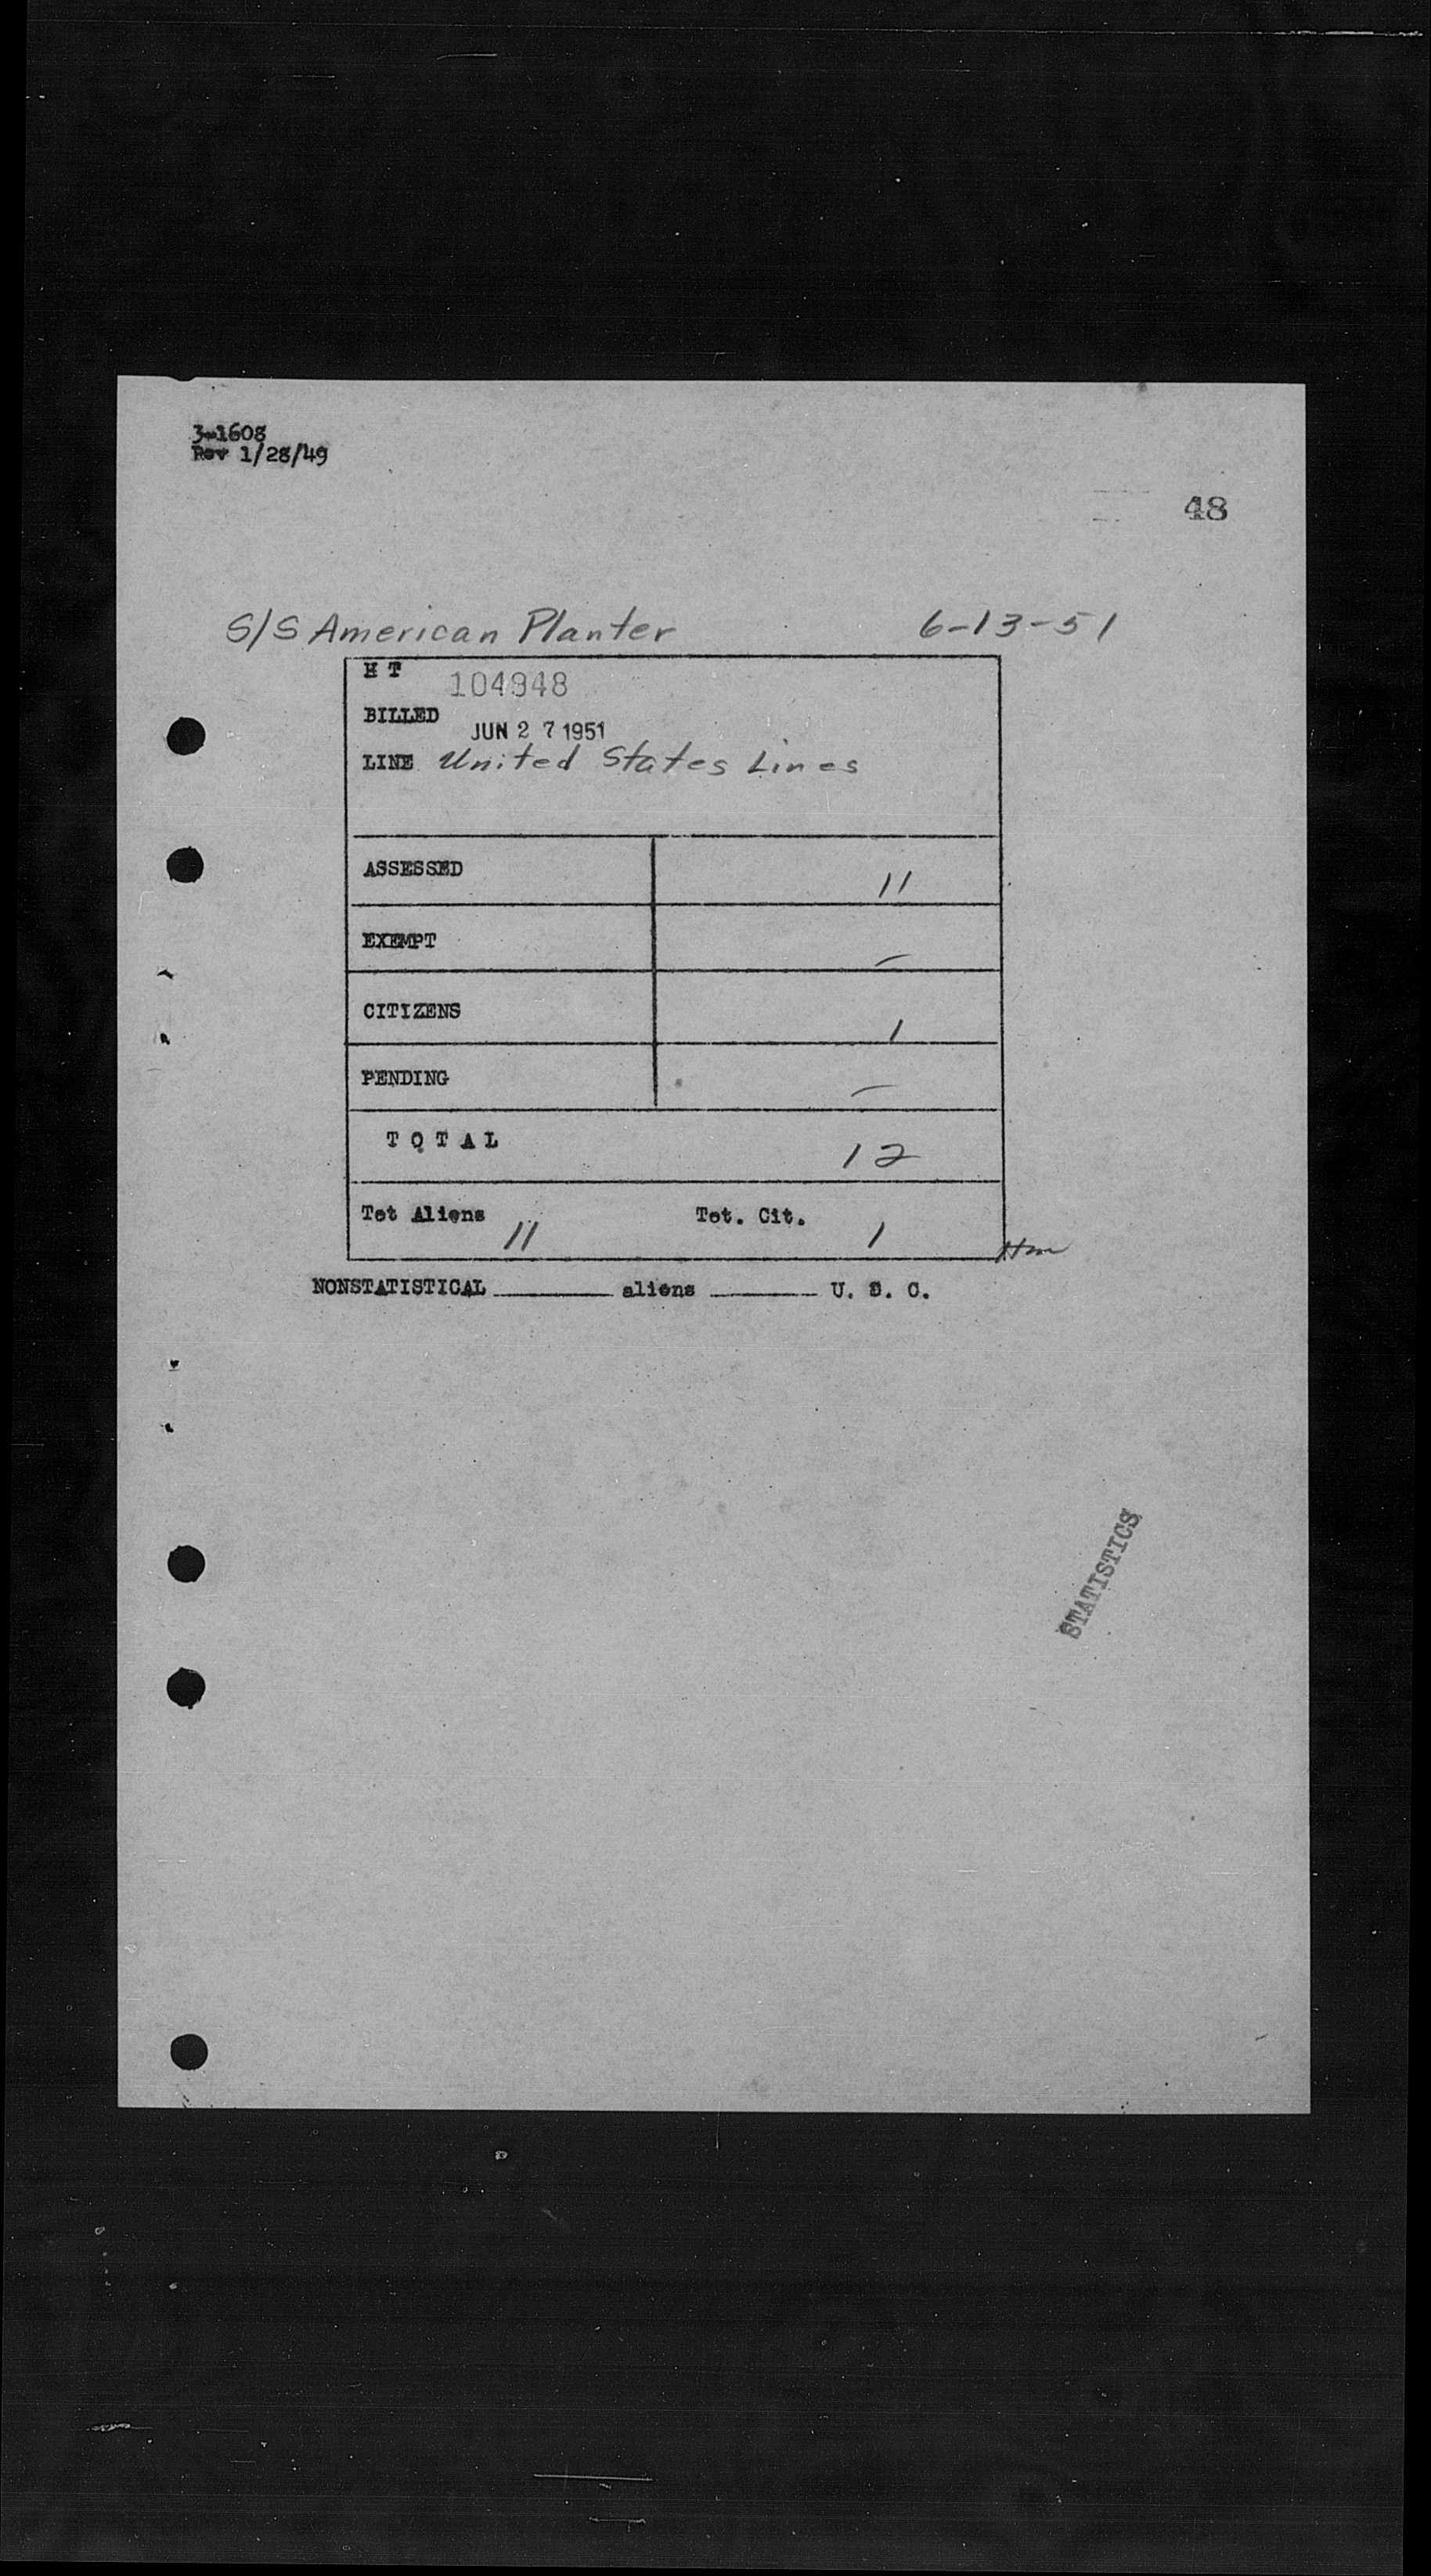 3-1608
Rev 1/28/49
48
S/S American Planter 6-13-51
H T 104948
BILLED JUN 27 1951
LINE United States Lines
ASSESSED 11
EXEMPT —
CITIZENS 1
PENDING —
TOTAL 12
Tot Aliens 11 Tot. Cit. 1
NONSTATISTICAL ______ aliens ______ U. S. C.
STATISTICS